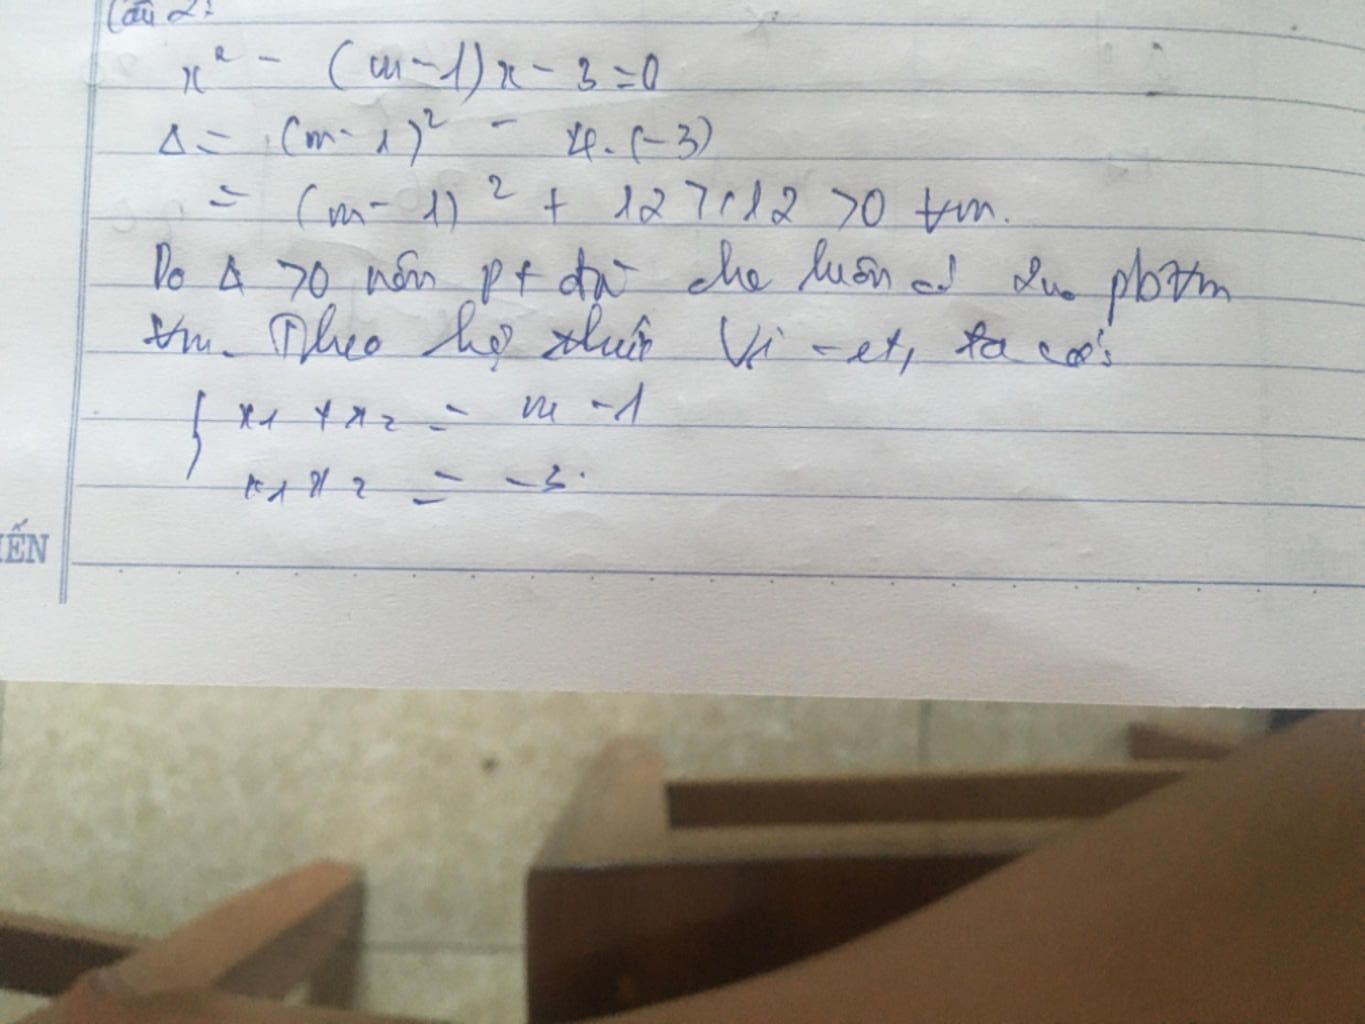 Câu 2:
x² - (m-1)x - 3 = 0
Δ = (m-1)² - 4.(-3)
= (m-1)² + 12 ≥ 12 > 0 ∀m.
Do Δ > 0 nên pt đã cho luôn có 2no pb ∀m
∀m. Theo hệ thức Vi-et, ta có:
{ x1 + x2 = m - 1
x1x2 = -3.
ẾN